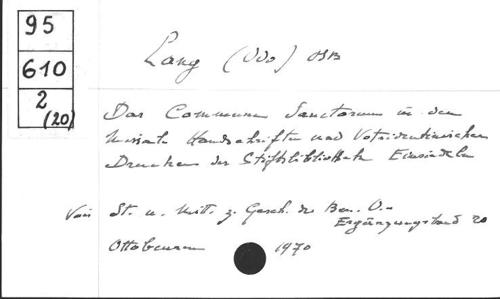 95
610
2
(20)
Lang (Odo) OSB
Das Commune Sanctorum in den
Missale Handschriften und Vortridentinischen
Drucken der Stiftsbibliothek Einsiedeln
Voir St. u. Mitt. z. Gesch. des Ben. O.-
Ergänzungsband 20
Ottobeuren 1970